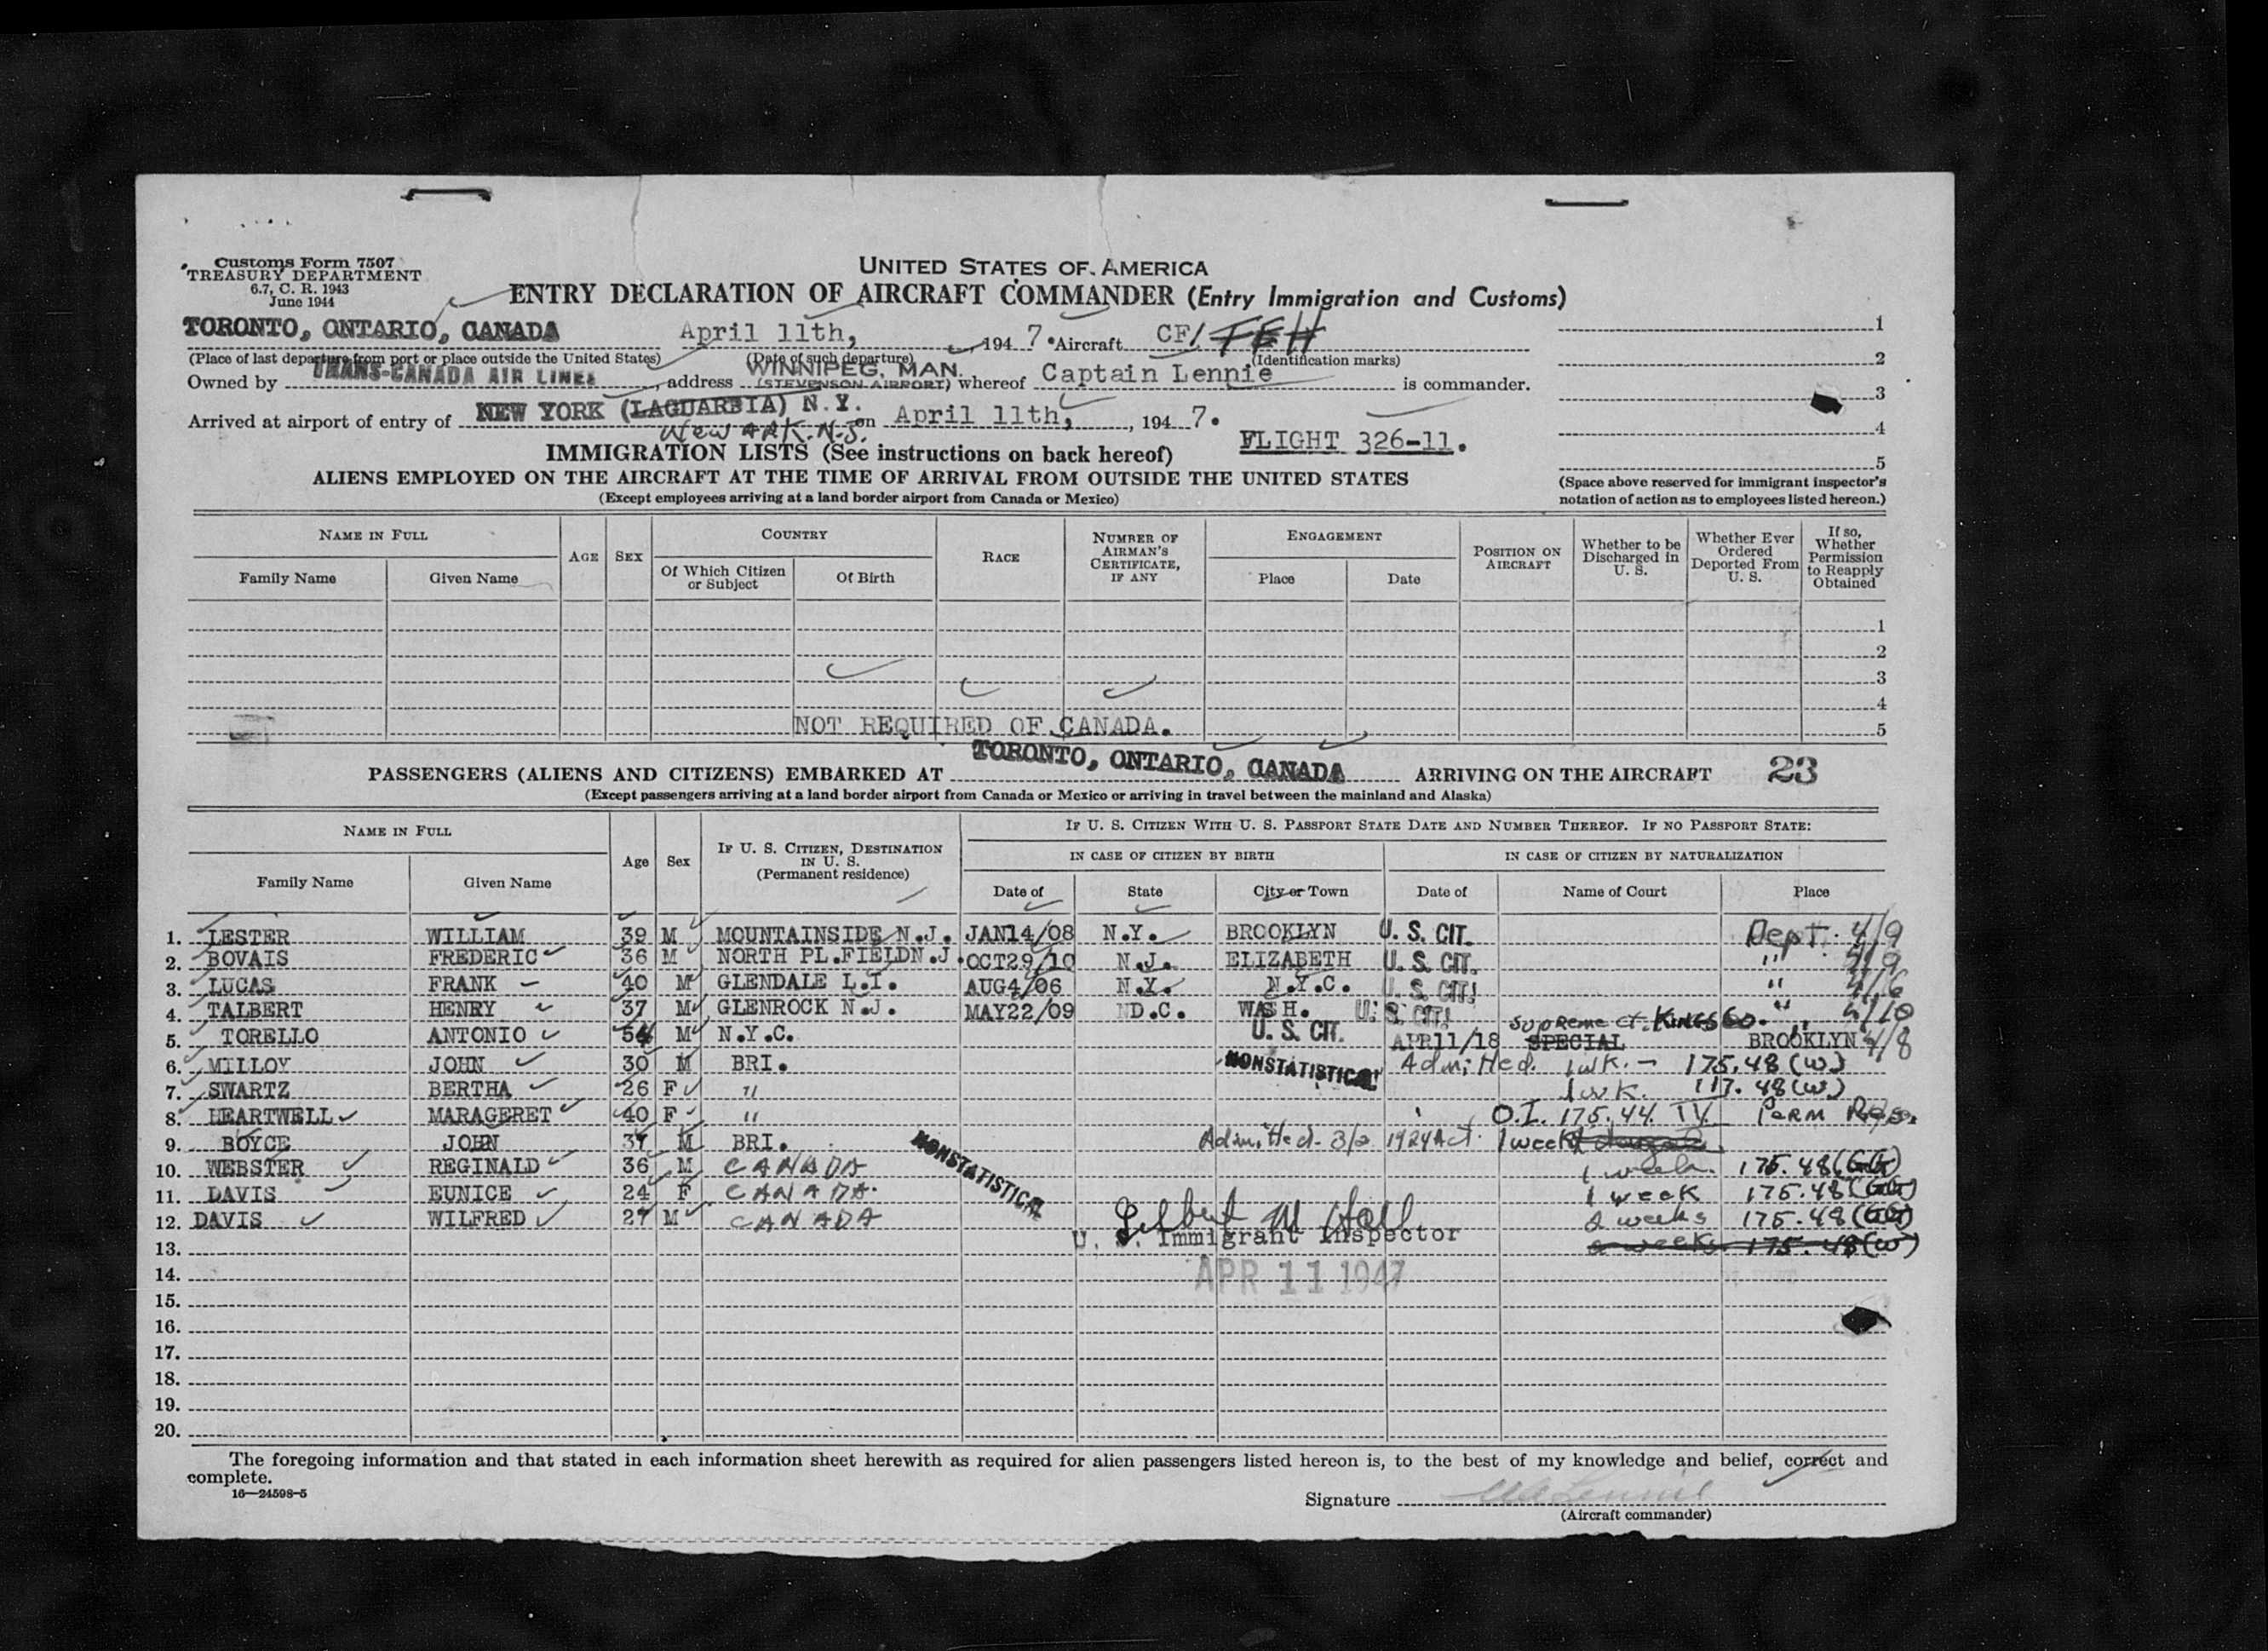 Customs Form 7507
TREASURY DEPARTMENT
6.7, C. R. 1943
June 1944
UNITED STATES OF AMERICA
ENTRY DECLARATION OF AIRCRAFT COMMANDER (Entry Immigration and Customs)
TORONTO, ONTARIO, CANADA April 11th, 194 7 Aircraft CF/ TEH 1
(Place of last departure from port or place outside the United States) (Date of such departure) (Identification marks) 2
Owned by TRANS-CANADA AIR LINES, address WINNIPEG, MAN. (STEVENSON AIRPORT) whereof Captain Lennie is commander. 3
Arrived at airport of entry of NEW YORK (LAGUARDIA) N.Y. on April 11th, 194 7. 4
Newark. N.J.
FLIGHT 326-11. 5
IMMIGRATION LISTS (See instructions on back hereof)
ALIENS EMPLOYED ON THE AIRCRAFT AT THE TIME OF ARRIVAL FROM OUTSIDE THE UNITED STATES
(Except employees arriving at a land border airport from Canada or Mexico)
(Space above reserved for immigrant inspector's notation of action as to employees listed hereon.)
NAME IN FULL AGE SEX COUNTRY RACE NUMBER OF AIRMAN'S CERTIFICATE, IF ANY ENGAGEMENT POSITION ON AIRCRAFT Whether to be Discharged in U. S. Whether Ever Ordered Deported From U. S. If so, Whether Permission to Reapply Obtained
Family Name Given Name Of Which Citizen or Subject Of Birth Place Date
1
2
3
4
NOT REQUIRED OF CANADA. 5
PASSENGERS (ALIENS AND CITIZENS) EMBARKED AT TORONTO, ONTARIO, CANADA ARRIVING ON THE AIRCRAFT 23
(Except passengers arriving at a land border airport from Canada or Mexico or arriving in travel between the mainland and Alaska)
NAME IN FULL Age Sex IF U. S. CITIZEN, DESTINATION IN U. S. (Permanent residence) IF U. S. CITIZEN WITH U. S. PASSPORT STATE DATE AND NUMBER THEREOF. IF NO PASSPORT STATE:
IN CASE OF CITIZEN BY BIRTH IN CASE OF CITIZEN BY NATURALIZATION
Family Name Given Name Date of State City or Town Date of Name of Court Place
1. LESTER WILLIAM 39 M MOUNTAINSIDE N.J. JAN14/08 N.Y. BROOKLYN U. S. CIT. Dept. 4/9
2. BOVAIS FREDERIC 36 M NORTH PL.FIELDN.J. OCT29/10 N.J. ELIZABETH U. S. CIT. " 4/9
3. LUCAS FRANK 40 M GLENDALE L.I. AUG4/06 N.Y. N.Y.C. U. S. CIT. " 4/6
4. TALBERT HENRY 37 M GLENROCK N.J. MAY22/09 D.C. WASH. U. S. CIT. " 4/10
5. TORELLO ANTONIO 54 M N.Y.C. U. S. CIT. APR11/18 Supreme Ct. KINGS Co. SPECIAL BROOKLYN " 4/8
6. MILLOY JOHN 30 M BRI. NONSTATISTICAL Admitted. 1 wk. - 175.48 (W)
7. SWARTZ BERTHA 26 F " 1 wk. 117.48 (W)
8. HEARTWELL MARAGERET 40 F " O.I. 175.44 IV Perm Res.
9. BOYCE JOHN 37 M BRI. Admitted - 3/2 1924 Act. 1 week
10. WEBSTER REGINALD 36 M CANADA NONSTATISTICAL 1 week. 175.48 (GG)
11. DAVIS EUNICE 24 F CANADA. 1 week 175.48 (GG)
12. DAVIS WILFRED 27 M CANADA Gilbert M Hall 2 weeks 175.48 (GG)
U. S. Immigrant Inspector
13. 2 weeks 175.48 (W)
14. APR 11 1947
15.
16.
17.
18.
19.
20.
The foregoing information and that stated in each information sheet herewith as required for alien passengers listed hereon is, to the best of my knowledge and belief, correct and
complete.
16—24598-5
Signature Lennie
(Aircraft commander)